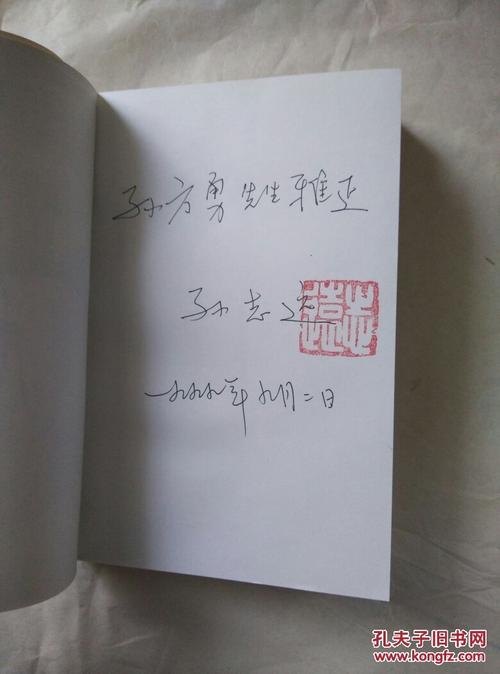 孙方勇先生雅正
孙志远
一九九九年九月二日
孔夫子旧书网
www.kongfz.com